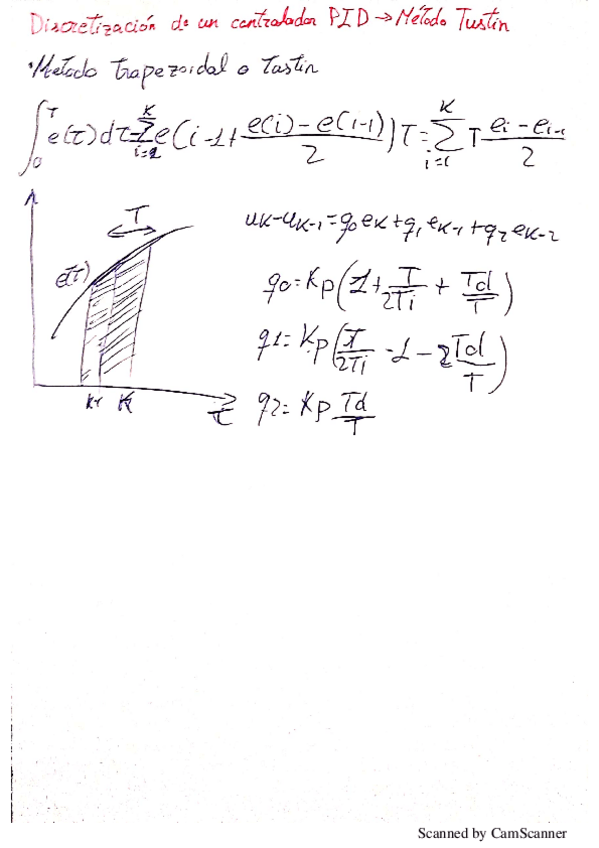 Discretización de un controlador PID → Método Tustin
·Metodo trapezoidal o Tastin
∫_0^T e(τ)dτ = Σ_{i=1}^{K} e(i-1 + (e(i) - e(i-1))/2) T = Σ_{i=1}^{K} T (e_i - e_{i-1})/2
T
e(τ)
K-1 K
τ
u_K - u_{K-1} = q_0 e_K + q_1 e_{K-1} + q_2 e_{K-2}
q_0 = Kp (1 + T/(2Ti) + Td/T)
q_1 = Kp (T/(2Ti) - 1 - 2 Td/T)
q_2 = Kp Td/T
Scanned by CamScanner